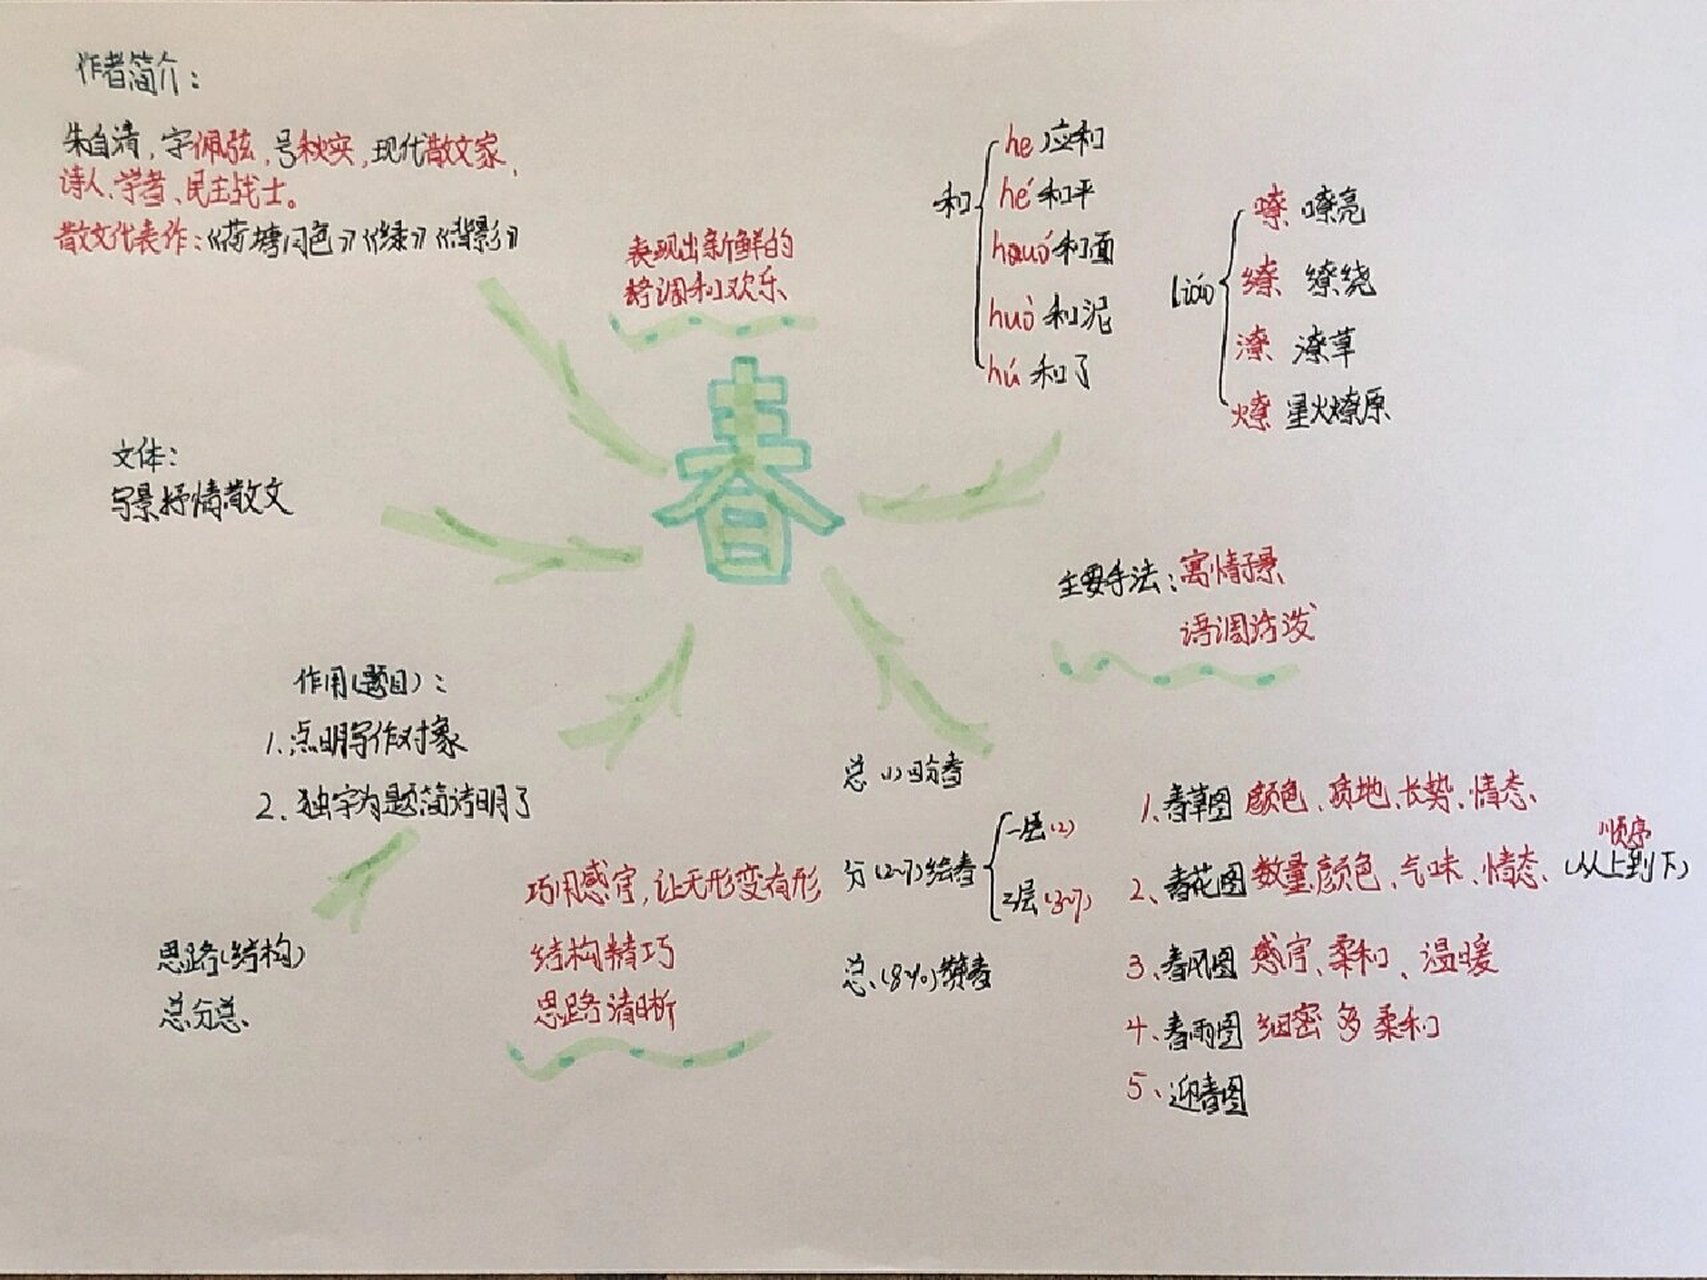 作者简介：
朱自清，字佩弦，号秋实，现代散文家，
诗人、学者、民主战士。
散文代表作：《荷塘月色》《绿》《背影》
表现出新鲜的
格调和欢乐
春
和
he 应和
hé 和平
huó 和面
huò 和泥
hú 和了
liáo
嘹 嘹亮
缭 缭绕
潦 潦草
燎 星火燎原
文体：
写景抒情散文
主要手法：寓情于景
语调活泼
作用（题目）：
1.点明写作对象
2.独字为题简洁明了
思路（结构）
总分总
巧用感官，让无形变有形
结构精巧
思路清晰
总（1）盼春
分（2~7）绘春
一层（2）
二层（3~7）
总（8~10）赞春
1、春草图 颜色、质地、长势、情态、
顺序
2、春花图 数量颜色、气味、情态、（从上到下）
3、春风图 感官、柔和、温暖
4、春雨图 细密 多 柔和
5、迎春图